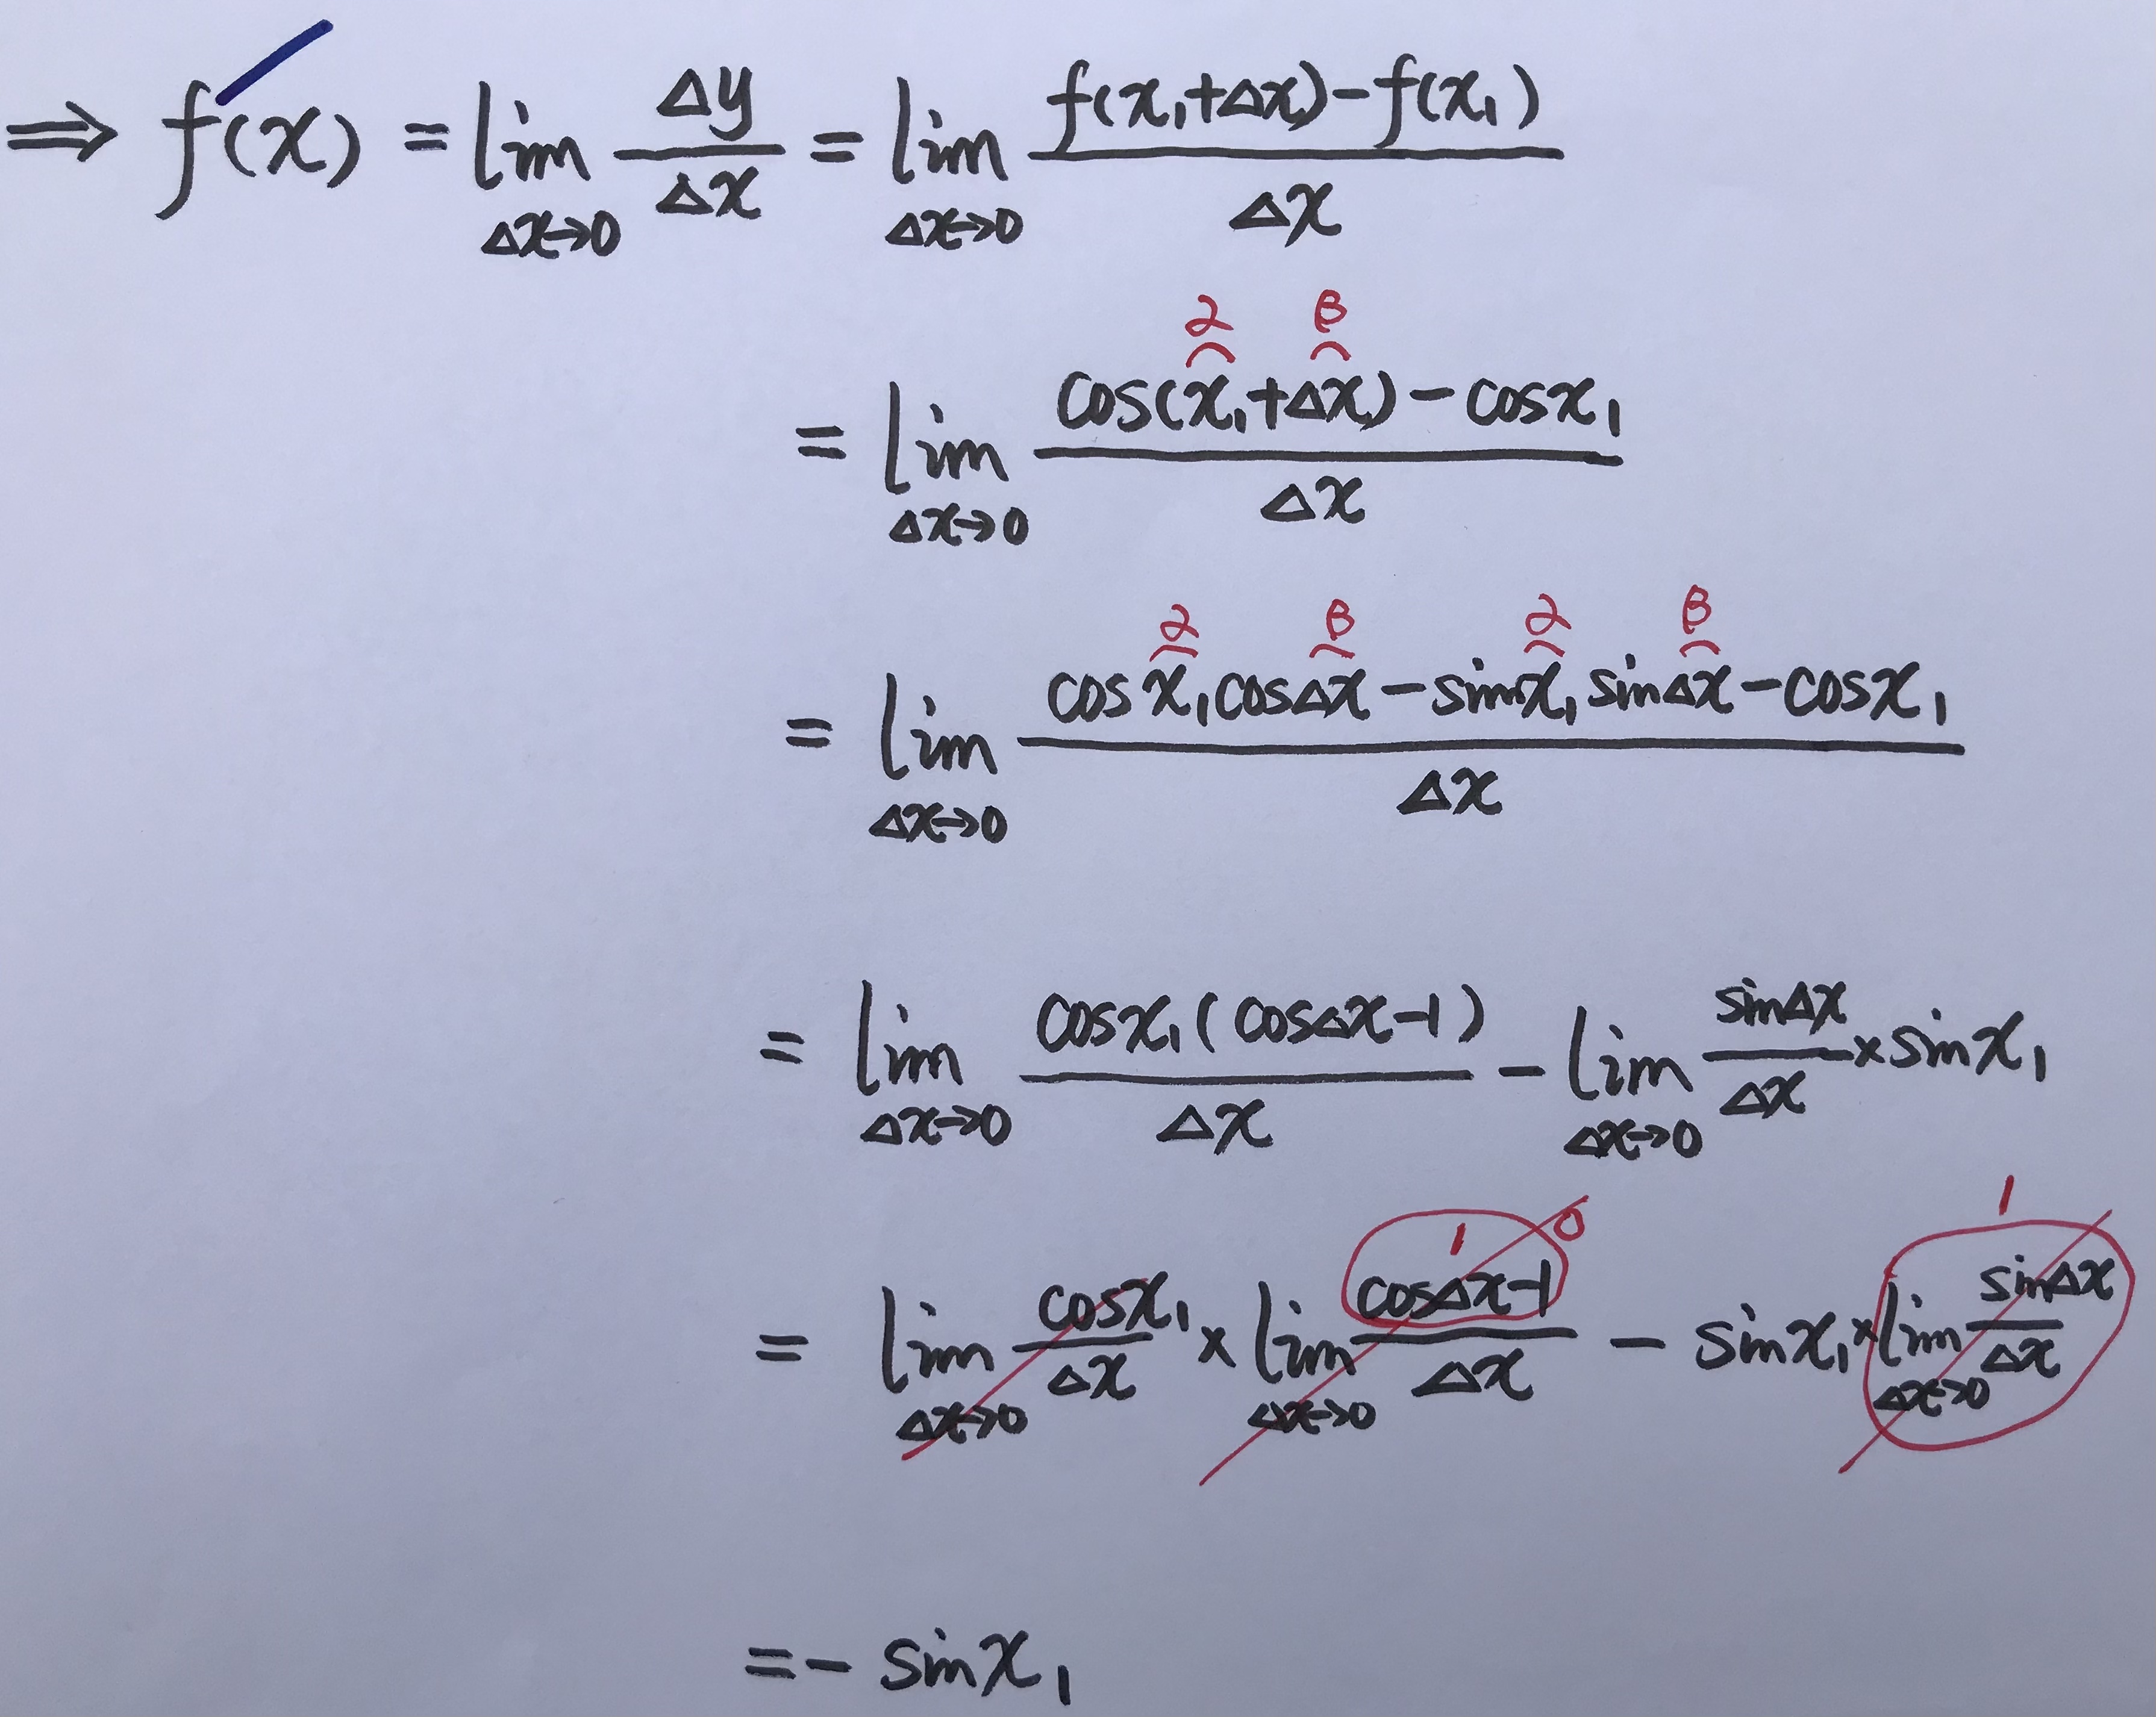 ⇒ f′(x) = lim_{Δx→0} Δy/Δx = lim_{Δx→0} (f(x₁+Δx)−f(x₁))/Δx
α β
= lim_{Δx→0} (cos(x₁+Δx)−cosx₁)/Δx
α β α β
= lim_{Δx→0} (cosx₁cosΔx−sinx₁sinΔx−cosx₁)/Δx
= lim_{Δx→0} (cosx₁(cosΔx−1))/Δx − lim_{Δx→0} (sinΔx)/Δx × sinx₁
1 0 1
= lim_{Δx→0} (cosx₁)/Δx × lim_{Δx→0} (cosΔx−1)/Δx − sinx₁ × lim_{Δx→0} (sinΔx)/Δx
= − sinx₁